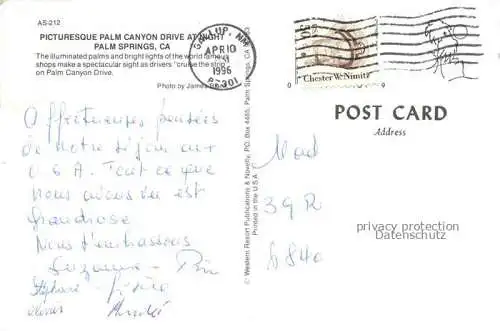 AS-212
PICTURESQUE PALM CANYON DRIVE AT NIGHT
PALM SPRINGS, CA
The illuminated palms and bright lights of the world famous
shops make a spectacular sight as drivers "cruise the strip"
on Palm Canyon Drive.
Photo by James
GALLUP, NM
APR 10
1996
87301
Chester W. Nimitz
POST CARD
Address
© Western Resort Publications & Novelty, PO. Box 4465, Palm Springs, CA
Printed in the U.S.A.
Affectueuses pensées
de notre séjour aux
U.S.A. Tout ce que
nous avons vu est
grandiose
Nous t'embrassons
Suzanne
Stéphane
André
Mad
39 R
6840
privacy protection
Datenschutz